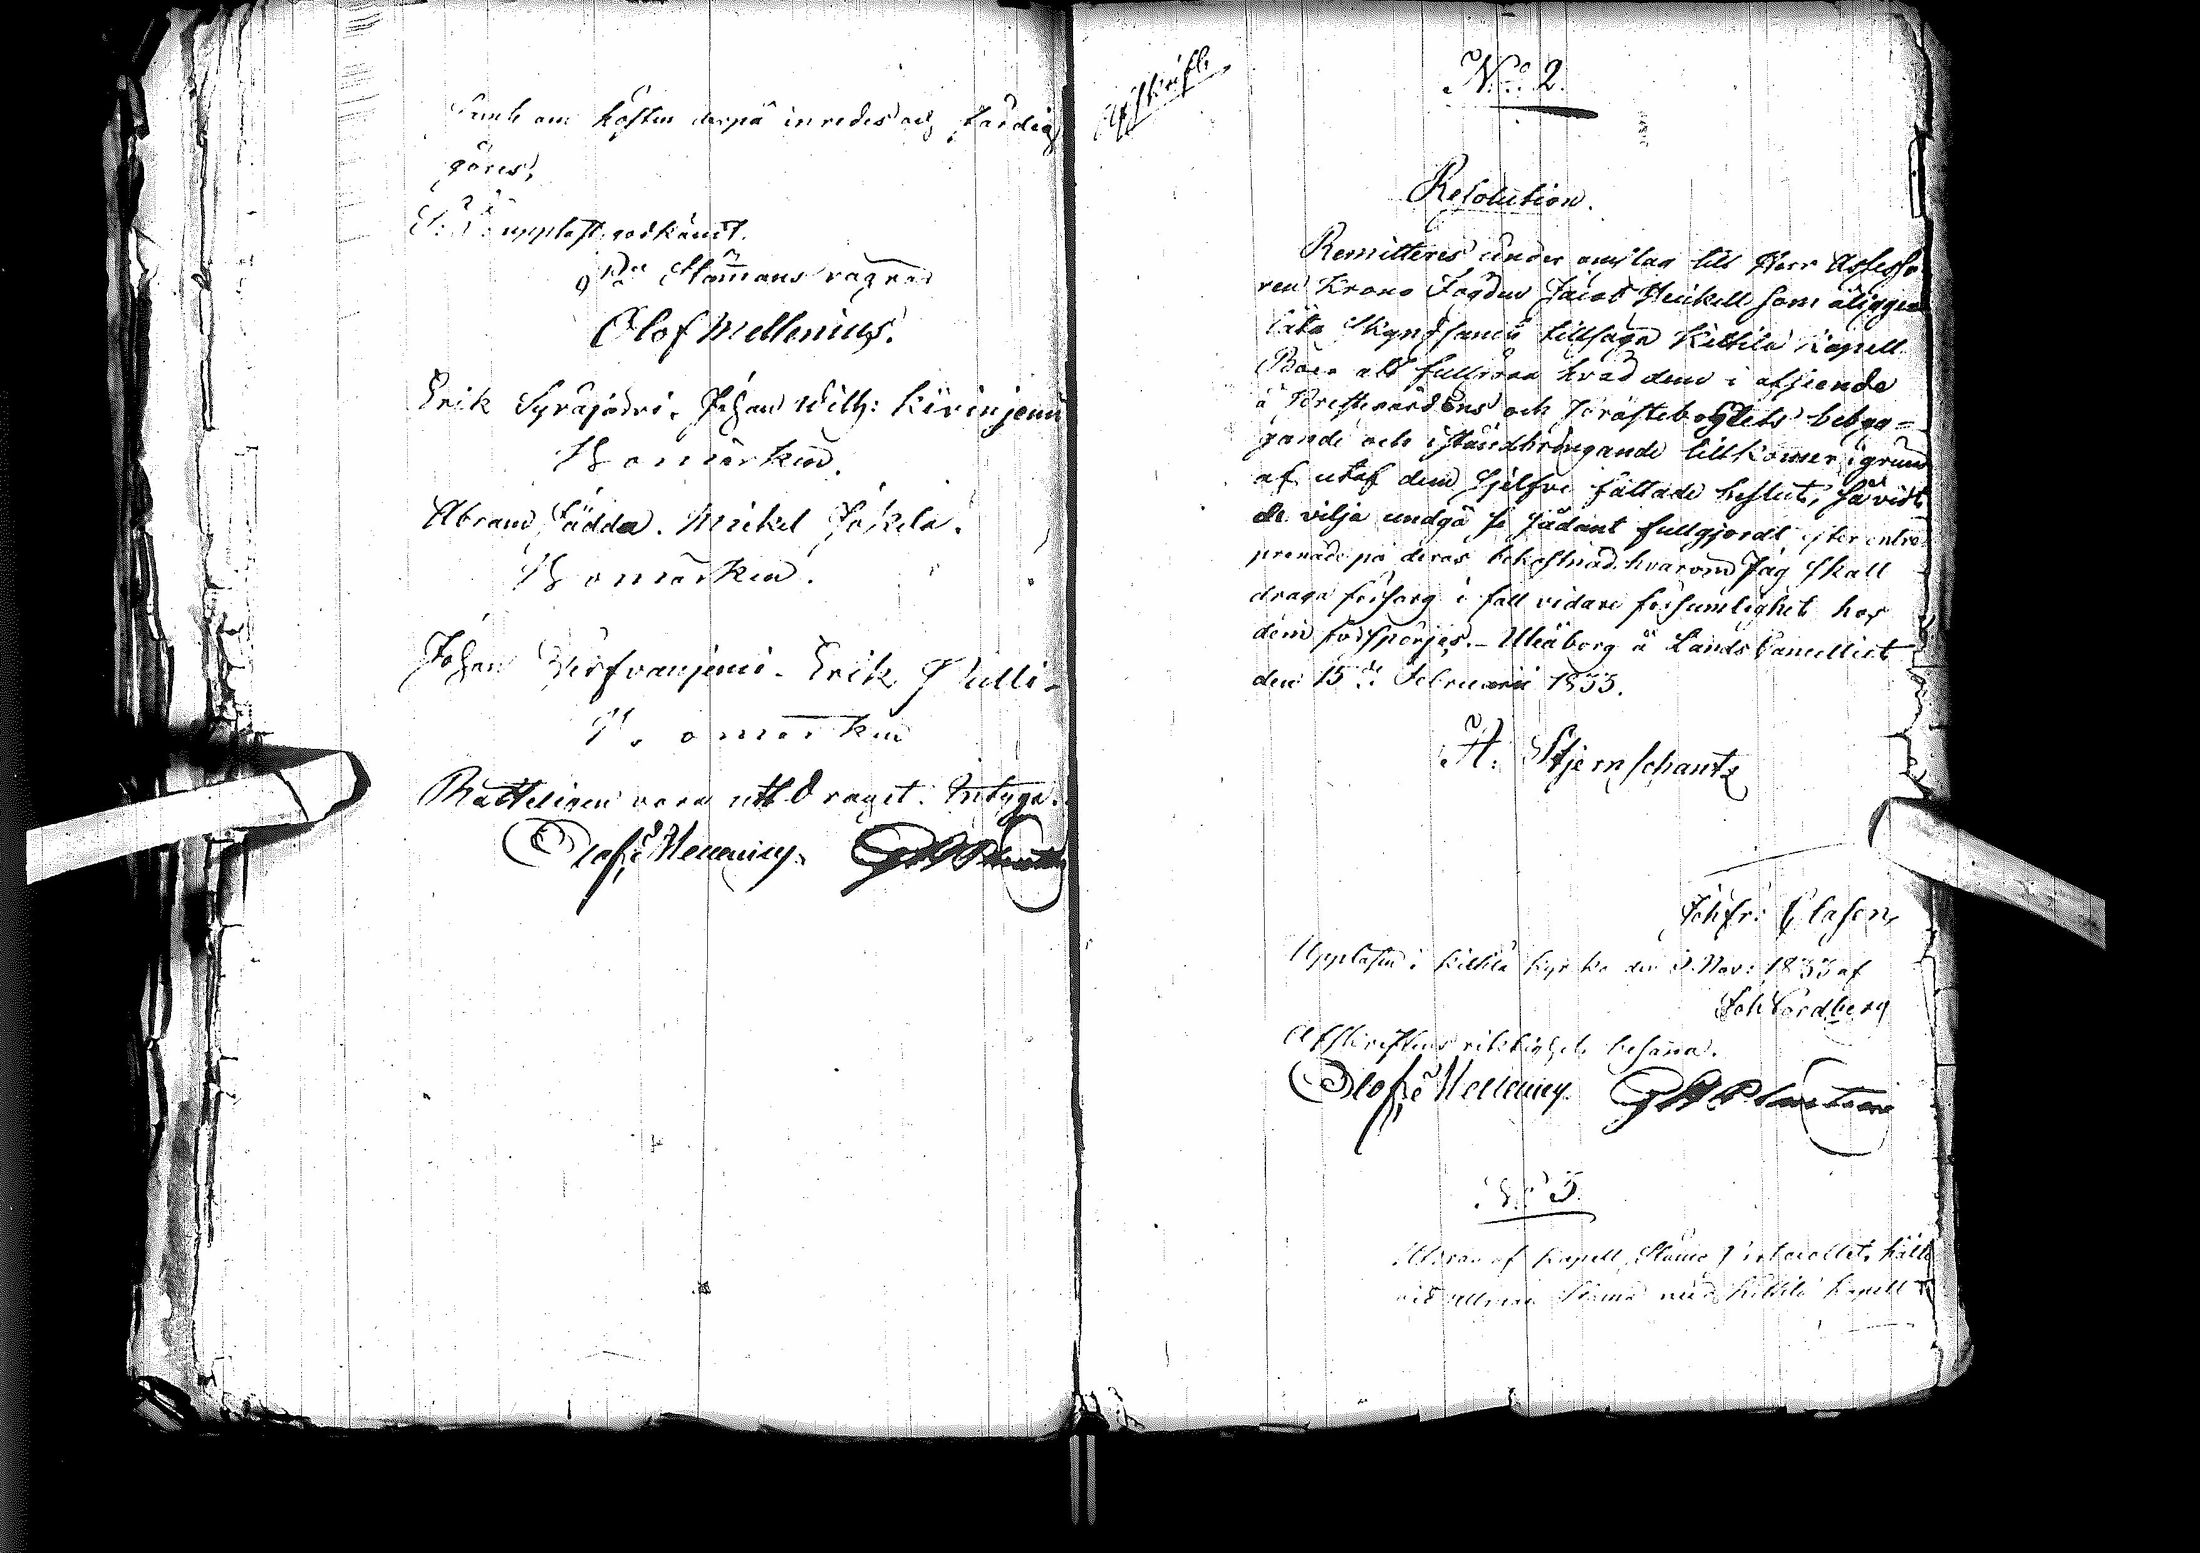 samt om hösten derpå inredes och färdig
göres,
uppläst godkänt.
På Stämmans vägnar
Olof Mellenius.
Erik Syväjärvi. Johan Wilh: Kivinjemi
Bomärken.
Abram Fädda. Mickel Jokela.
Bomärken.
Johan Erik Pulli-
Bomärken
Rätteligen vara utdraget. Intyga.
Olof Mellenius.
Afskrift.
N:o 2.
Resolution.
Remitteres under omslag till Herr Assesso-
ren Krono Fogden Jacob Heikell som åligger
låta skyndsamt tillsäga Kittilä Kapell
Boer att fullgöra hvad dem i afseende
å Prestgårdens och Boställets bebyg=
gande och iståndbringande tillkommer i grund
af utaf dem sjelfve fattade beslut, såvidt
de vilja undgå se sådant fullgjordt efter entre-
prenade på deras bekostnad hvarom Jag skall
draga försorg i fall vidare försumlighet hos
dem försporjes. - Uleåborg å Lands Cancelliet
den 15:de Februarii 1833.
A. Stjernschantz
Joh Fr: Clasen,
Uppläsen i Kittilä kyrka den 3 Nov: 1833 af
Joh Nordberg
Afskriftens riktighet besanna.
Olof Mellenius.
N:o 3.
Utdrag af Kapell Stämo Protocollet, hållt
vid allmän Stämma med Kittilä Kapell